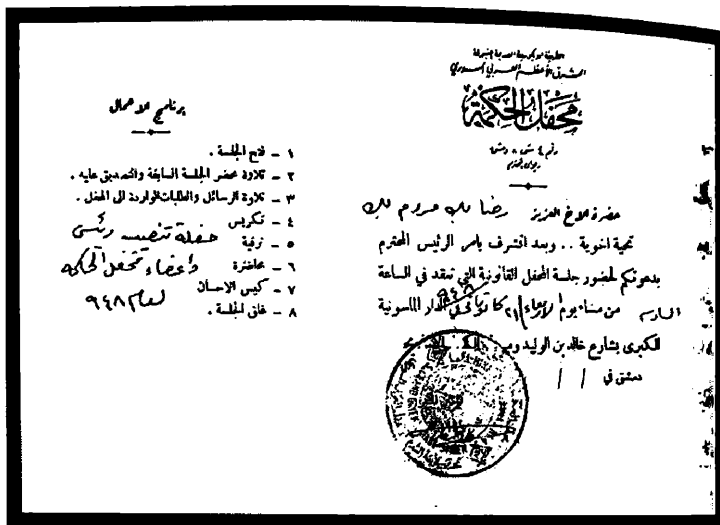 الشرق الأعظم العربي السوري
محفل الحكمة
رقم ٤ ش ٠ دمشق
حضرة الاخ العزيز رضا بك مردم بك
تحية اخوية . . وبعد اتشرف بامر الرئيس المحترم
بدعوتكم لحضور جلسة المحفل القانونية التي تعقد في الساعة
السادسة من مساء يوم الاربعاء ٢١ الدار الماسونية
الكبرى بشارع خالد بن الوليد
دمشق في / /
برنامج الاعمال
١ - فتح الجلسة .
٢ - تلاوة محضر الجلسة السابقة والتصديق عليه .
٣ - تلاوة الرسائل والطلبات الواردة الى المحفل .
٤ - تكريس
٥ - ترقية
٦ - محاضرة
٧ - كيس الاحسان
٨ - غلق الجلسة .
حفلة تنصيب رئيس
واعضاء محفل الحكمة
لعام ٩٤٨